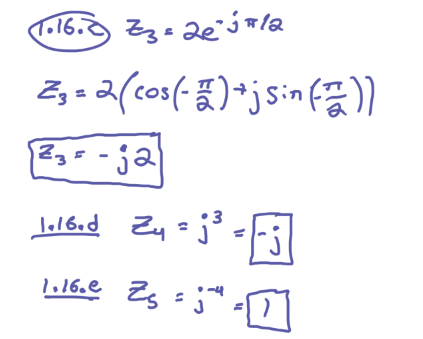 1.16.c z₃ = 2e^-jπ/2
z₃ = 2(cos(-π/2) + j sin(-π/2))
z₃ = -j2
1.16.d z₄ = j³ = -j
1.16.e z₅ = j⁻⁴ = 1